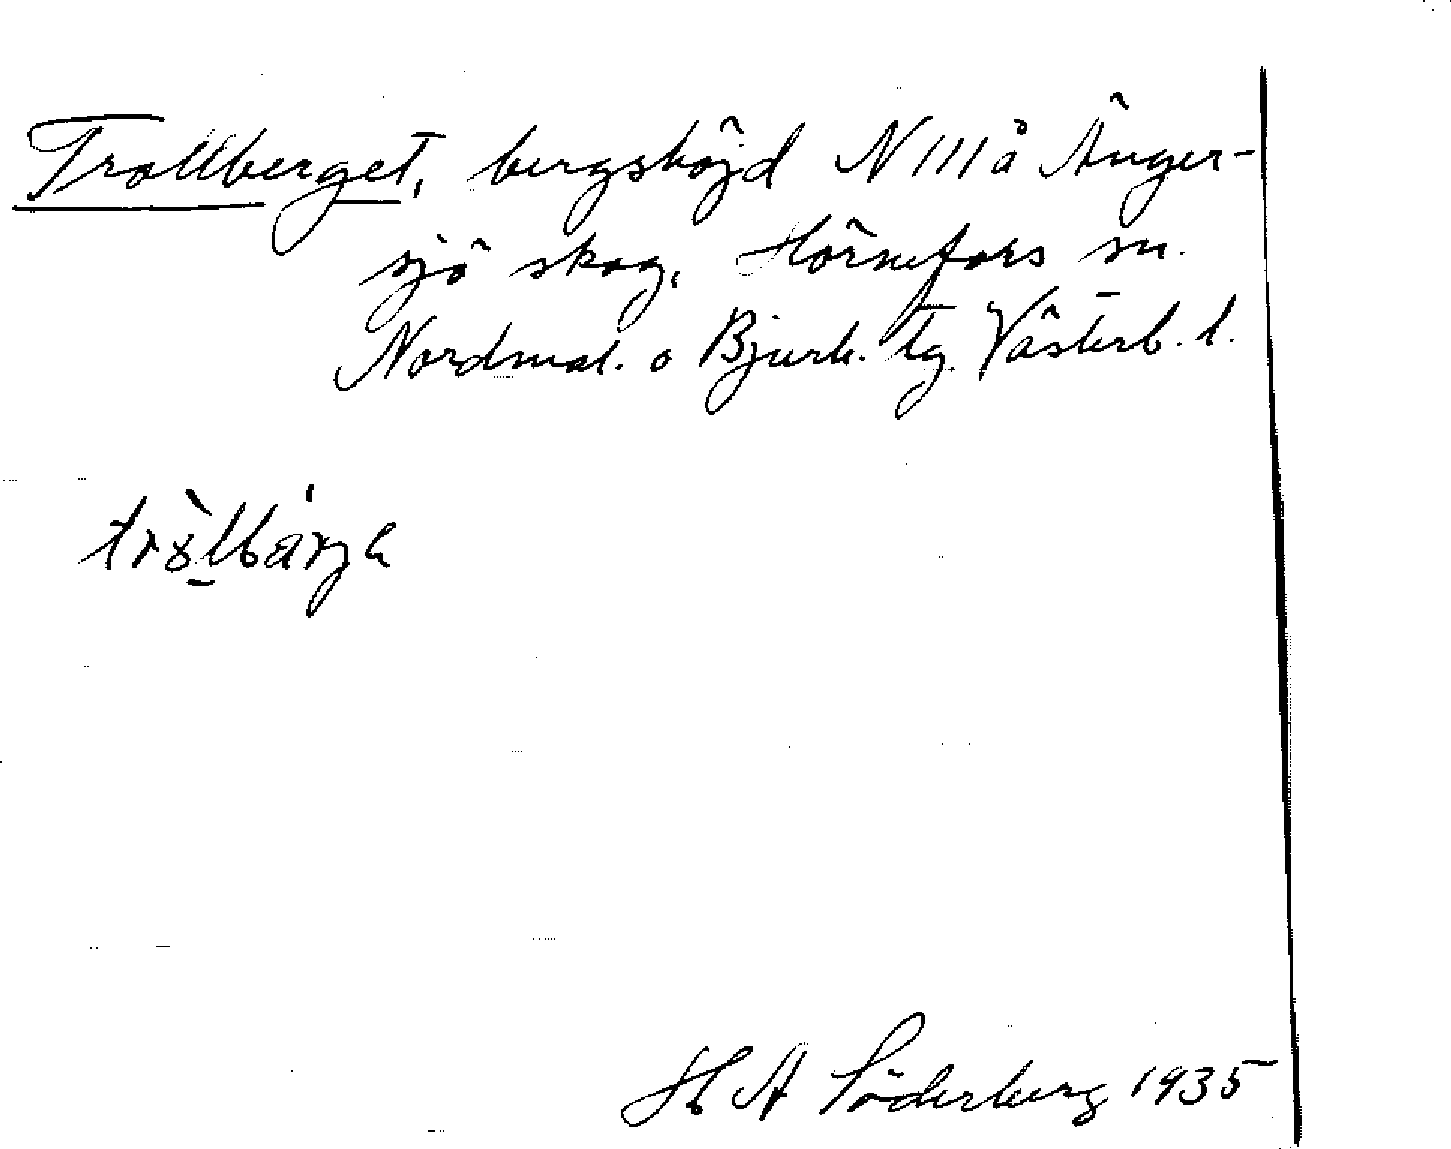 Trollberget, bergshöjd N III å Ånger-
sjö skog, Hörnefors sn.
Nordmal. o Bjurh. tg. Västerb. l.
H A Söderberg 1935